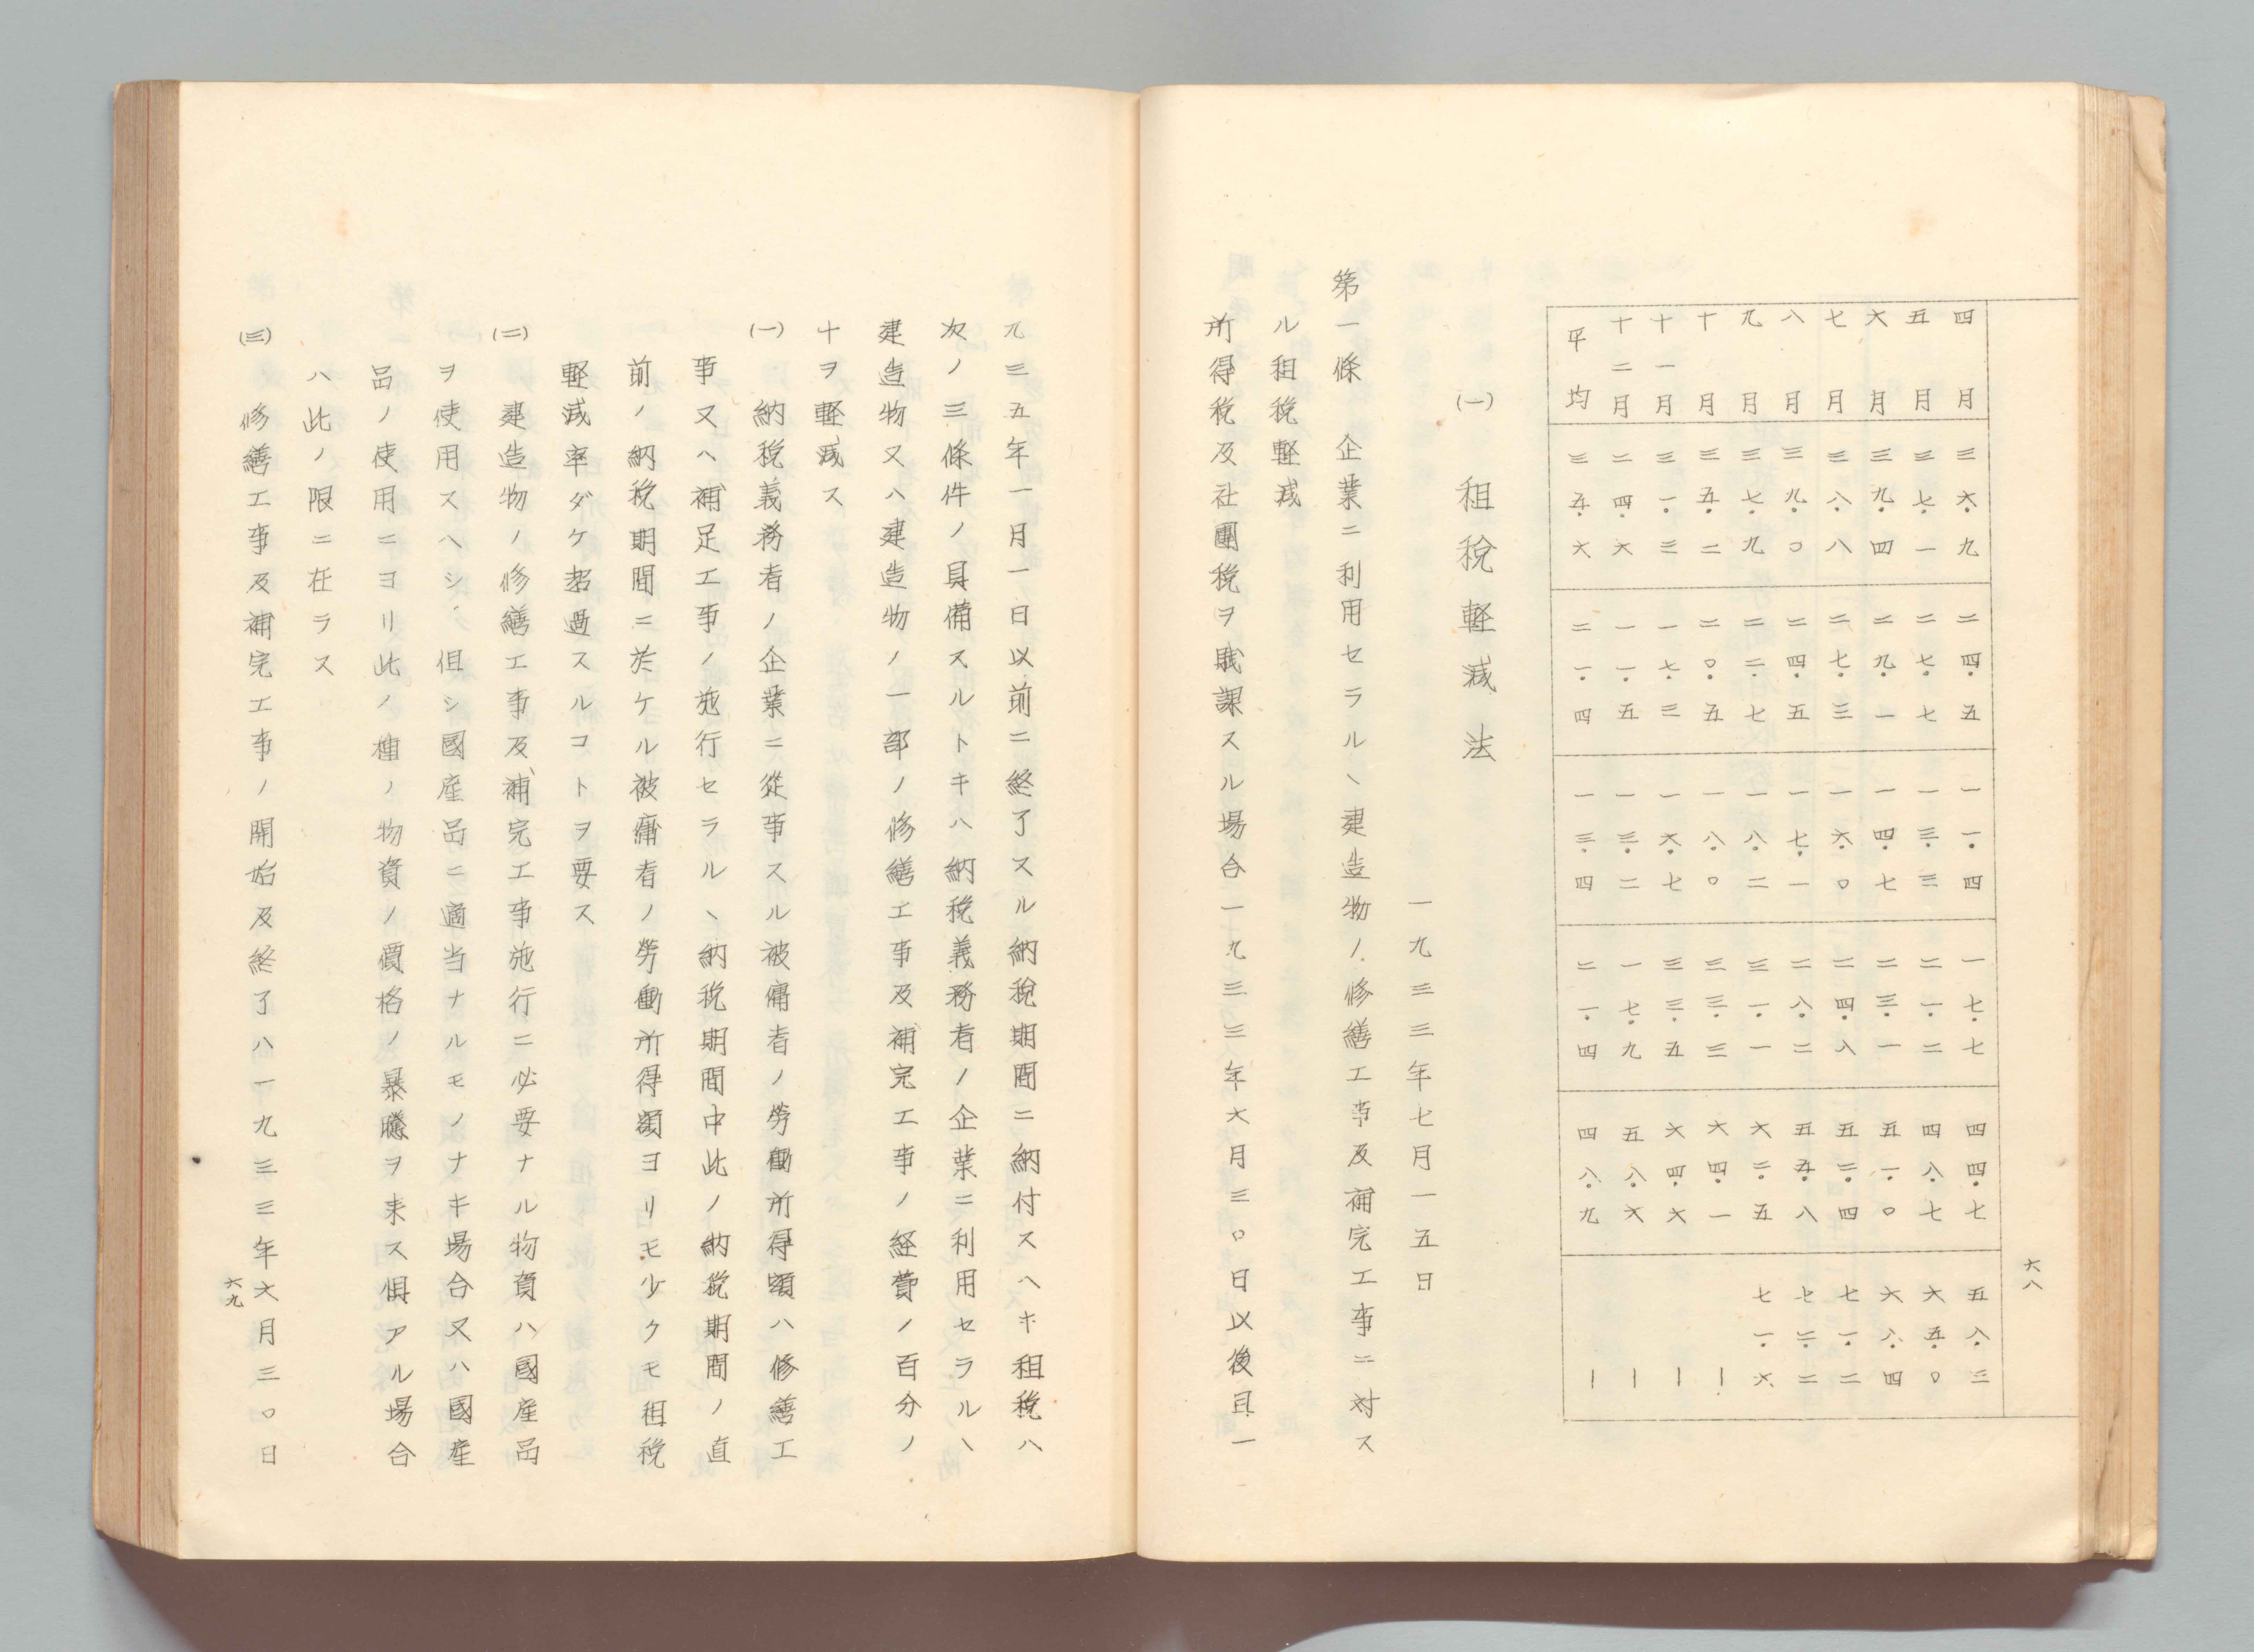 六八
四月 三六・九 二四・五 一一・四 一七・七 四四・七 五八・三
五月 三七・一 二七・七 一三・三 二一・二 四八・七 六五・〇
六月 三九・四 二九・一 一四・七 二三・一 五一・〇 六八・四
七月 三八・八 二七・三 一六・〇 二四・八 五二・四 七一・二
八月 三九・〇 二四・五 一七・一 二八・二 五五・八 七二・二
九月 三七・九 二二・七 一八・二 三一・一 六二・五 七一・六
十月 三五・二 二〇・五 一八・〇 三三・三 六四・一 ー
十一月 三一・三 一七・三 一六・七 三三・五 六四・六 ー
十二月 二四・六 一一・五 一三・二 一七・九 五八・六 ー
平均 三五・六 二一・四 一三・四 二一・四 四八・九 ー
(一) 租税軽減法
一九三三年七月一五日
第一條 企業ニ利用セラルヽ建造物ノ修繕工事及補完工事ニ対ス
ル租税軽減
所得税及社團税ヲ賦課スル場合一九三三年六月三〇日以後且一
九三五年一月一日以前ニ終了スル納税期間ニ納付スヘキ租税ハ
次ノ三條件ノ具備スルトキハ納税義務者ノ企業ニ利用セラルヽ
建造物又ハ建造物ノ一部ノ修繕工事及補完工事ノ経費ノ百分ノ
十ヲ軽減ス
(一) 納税義務者ノ企業ニ從事スル被傭者ノ勞働所得額ハ修繕工
事又ハ補足工事ノ施行セラルヽ納税期間中此ノ納税期間ノ直
前ノ納税期間ニ於ケル被傭者ノ勞働所得額ヨリモ少クモ租税
軽減率ダケ超過スルコトヲ要ス
(二) 建造物ノ修繕工事及補完工事施行ニ必要ナル物資ハ國産品
ヲ使用スヘシ、但シ國産品ニ適当ナルモノナキ場合又ハ國産
品ノ使用ニヨリ此ノ種ノ物資ノ價格ノ暴騰ヲ来ス惧アル場合
ハ此ノ限ニ在ラス
(三) 修繕工事及補完工事ノ開始及終了ハ一九三三年六月三〇日
六九